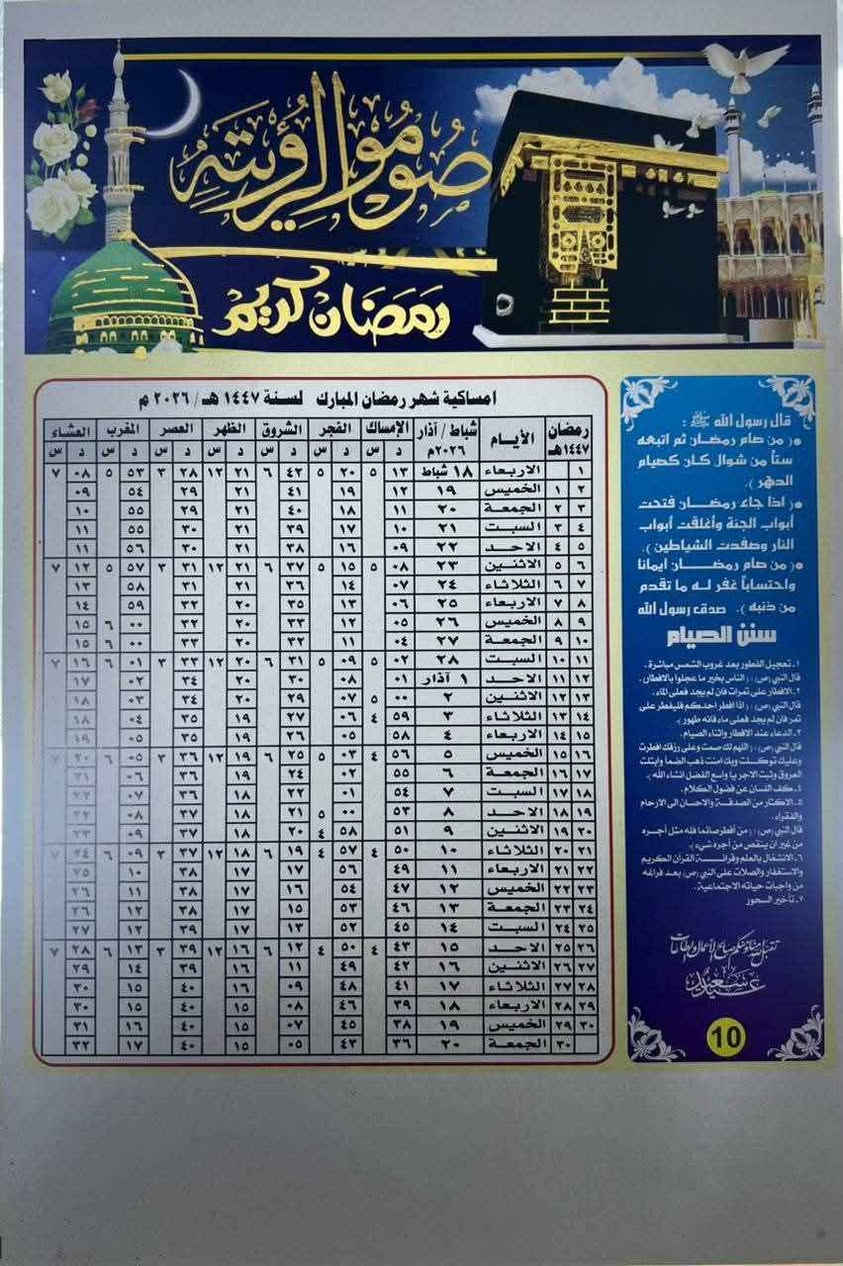 صوموا لرؤيته
رمضان كريم
امساكية شهر رمضان المبارك لسنة ١٤٤٧ هـ / ٢٠٢٦ م
رمضان ١٤٤٧هـ | الأيـام | شباط / آذار ٢٠٢٦م | الإمساك | الفجر | الشروق | الظهر | العصر | المغرب | العشاء
د س | د س | د س | د س | د س | د س | د س
١ | الاربعاء | ١٨ شباط | ١٣ ٥ | ٢٠ ٥ | ٤٢ ٦ | ٢١ ١٢ | ٢٨ ٣ | ٥٣ ٥ | ٠٨ ٧
٢ ١ | الخميس | ١٩ | ١٢ | ١٩ | ٤١ | ٢١ | ٢٩ | ٥٤ | ٠٩
٣ ٢ | الجمعة | ٢٠ | ١١ | ١٨ | ٤٠ | ٢١ | ٢٩ | ٥٥ | ١٠
٤ ٣ | السبت | ٢١ | ١٠ | ١٧ | ٣٩ | ٢١ | ٣٠ | ٥٥ | ١١
٥ ٤ | الاحد | ٢٢ | ٠٩ | ١٦ | ٣٨ | ٢١ | ٣٠ | ٥٦ | ١١
٦ ٥ | الاثنين | ٢٣ | ٠٨ ٥ | ١٥ ٥ | ٣٧ ٦ | ٢١ ١٢ | ٣١ ٣ | ٥٧ ٥ | ١٢ ٧
٧ ٦ | الثلاثاء | ٢٤ | ٠٧ | ١٤ | ٣٦ | ٢١ | ٣١ | ٥٨ | ١٣
٨ ٧ | الاربعاء | ٢٥ | ٠٦ | ١٣ | ٣٥ | ٢٠ | ٣٢ | ٥٩ | ١٤
٩ ٨ | الخميس | ٢٦ | ٠٥ | ١٢ | ٣٣ | ٢٠ | ٣٢ | ٠٠ ٦ | ١٥
١٠ ٩ | الجمعة | ٢٧ | ٠٤ | ١١ | ٣٢ | ٢٠ | ٣٣ | ٠٠ ٦ | ١٥
١١ ١٠ | السبت | ٢٨ | ٠٢ ٥ | ٠٩ ٥ | ٣١ ٦ | ٢٠ ١٢ | ٣٣ ٣ | ٠١ ٦ | ١٦ ٧
١٢ ١١ | الاحد | ١ آذار | ٠١ | ٠٨ | ٣٠ | ٢٠ | ٣٤ | ٠٢ | ١٧
١٣ ١٢ | الاثنين | ٢ | ٠٠ ٥ | ٠٧ | ٢٩ | ٢٠ | ٣٤ | ٠٣ | ١٨
١٤ ١٣ | الثلاثاء | ٣ | ٥٩ ٤ | ٠٦ | ٢٧ | ١٩ | ٣٥ | ٠٤ | ١٨
١٥ ١٤ | الاربعاء | ٤ | ٥٨ | ٠٥ | ٢٦ | ١٩ | ٣٥ | ٠٥ | ١٩
١٦ ١٥ | الخميس | ٥ | ٥٦ ٤ | ٠٣ ٥ | ٢٥ ٦ | ١٩ ١٢ | ٣٦ ٣ | ٠٥ ٦ | ٢٠ ٧
١٧ ١٦ | الجمعة | ٦ | ٥٥ | ٠٢ | ٢٤ | ١٩ | ٣٦ | ٠٦ | ٢١
١٨ ١٧ | السبت | ٧ | ٥٤ | ٠١ | ٢٢ | ١٨ | ٣٦ | ٠٧ | ٢٢
١٩ ١٨ | الاحد | ٨ | ٥٣ | ٠٠ ٥ | ٢١ | ١٨ | ٣٧ | ٠٨ | ٢٢
٢٠ ١٩ | الاثنين | ٩ | ٥١ | ٥٨ ٤ | ٢٠ | ١٨ | ٣٧ | ٠٩ | ٢٣
٢١ ٢٠ | الثلاثاء | ١٠ | ٥٠ ٤ | ٥٧ ٤ | ١٩ ٦ | ١٨ ١٢ | ٣٧ ٣ | ٠٩ ٦ | ٢٤ ٧
٢٢ ٢١ | الاربعاء | ١١ | ٤٩ | ٥٦ | ١٧ | ١٧ | ٣٨ | ١٠ | ٢٥
٢٣ ٢٢ | الخميس | ١٢ | ٤٧ | ٥٤ | ١٦ | ١٧ | ٣٨ | ١١ | ٢٦
٢٤ ٢٣ | الجمعة | ١٣ | ٤٦ | ٥٣ | ١٥ | ١٧ | ٣٨ | ١٢ | ٢٦
٢٥ ٢٤ | السبت | ١٤ | ٤٥ | ٥٢ | ١٣ | ١٧ | ٣٩ | ١٢ | ٢٧
٢٦ ٢٥ | الاحد | ١٥ | ٤٣ ٤ | ٥٠ ٤ | ١٢ ٦ | ١٦ ١٢ | ٣٩ ٣ | ١٣ ٦ | ٢٨ ٧
٢٧ ٢٦ | الاثنين | ١٦ | ٤٢ | ٤٩ | ١١ | ١٦ | ٣٩ | ١٤ | ٢٩
٢٨ ٢٧ | الثلاثاء | ١٧ | ٤١ | ٤٨ | ٠٩ | ١٦ | ٤٠ | ١٥ | ٣٠
٢٩ ٢٨ | الاربعاء | ١٨ | ٣٩ | ٤٦ | ٠٨ | ١٥ | ٤٠ | ١٥ | ٣٠
٣٠ ٢٩ | الخميس | ١٩ | ٣٨ | ٤٥ | ٠٧ | ١٥ | ٤٠ | ١٦ | ٣١
٣٠ | الجمعة | ٢٠ | ٣٦ | ٤٣ | ٠٥ | ١٥ | ٤٠ | ١٧ | ٣٢
قال رسول الله ﷺ :
(من صام رمضان ثم اتبعه
ستاً من شوال كان كصيام
الدهر).
(اذا جاء رمضان فتحت
أبواب الجنة وأغلقت أبواب
النار وصفدت الشياطين).
(من صام رمضان ايمانا
واحتساباً غفر له ما تقدم
من ذنبه). صدق رسول الله
سنن الصيام
١. تعجيل الفطور بعد غروب الشمس مباشرة.
قال النبي (ص): (الناس بخير ما عجلوا بالافطار.
٢. الافطار على تمرات فان لم يجد فعلى الماء.
قال النبي (ص): (اذا افطر احدكم فليفطر على
تمر فان لم يجد فعلى ماء فانه طهور).
٣. الدعاء عند الافطار واثناء الصيام.
قال النبي (ص): (اللهم لك صمت وعلى رزقك افطرت
وعليك توكلت وبك امنت ذهب الضمأ وابتلت
العروق وثبت الاجر يا واسع الفضل انشاء الله).
٤. كف اللسان عن فضول الكلام.
٥. الاكثار من الصدقة والاحسان الى الارحام
والفقراء.
قال النبي (ص): (من أفطر صائما فله مثل أجره
من غير ان ينقص من أجره شيء).
٦. الانشغال بالعلم وقراءة القران الكريم
والاستغفار والصلات على النبي (ص) بعد فراغه
من واجبات حياته الاجتماعية.
٧. تأخير السحور
10